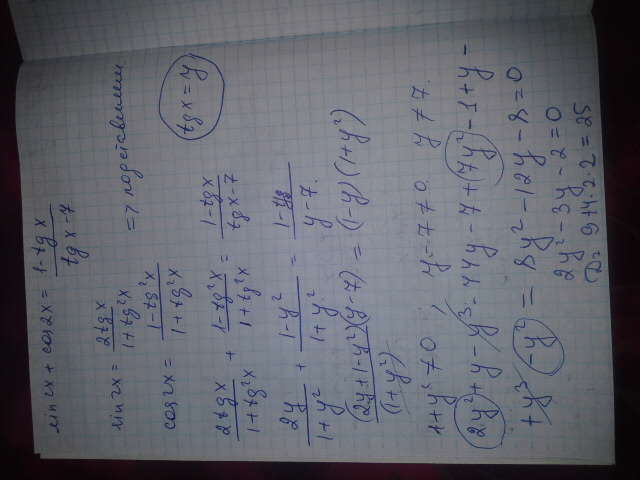 sin2x + cos2x = (1-tgx)/(tgx-7)
sin2x = 2tgx/(1+tg²x)
=> подставляем
cos2x = (1-tg²x)/(1+tg²x)
tgx=y
2tgx/(1+tg²x) + (1-tg²x)/(1+tg²x) = (1-tgx)/(tgx-7)
2y/(1+y²) + (1-y²)/(1+y²) = (1-y)/(y-7)
(2y+1-y²)(y-7)/(1+y²) = (1-y)(1+y²)
1+y² ≠ 0 , y-7≠0 y≠7.
2y²+y-y³-14y-7+7y²-1+y-
+y³-y² = 8y²-12y-8=0
2y²-3y-2=0
D= 9+4·2·2=25